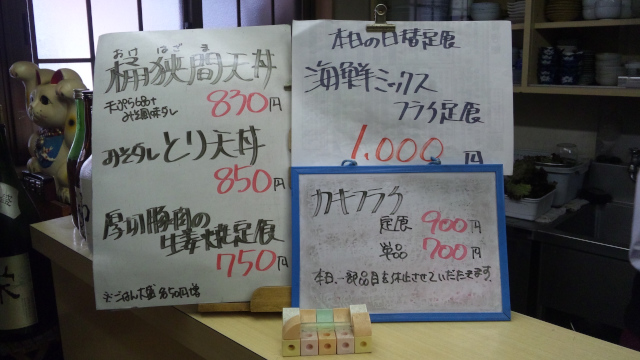 おけ はざ ま
桶狭間天丼
みそ風味タレ
830円
みそタレとり天丼
850円
厚切豚肉の
生姜焼定食
750円
本日の日替定食
海鮮ミックス
フライ定食
1,000円
カキフライ
定食 900円
単品 700円
本日、一部品目を休止させていただきます。